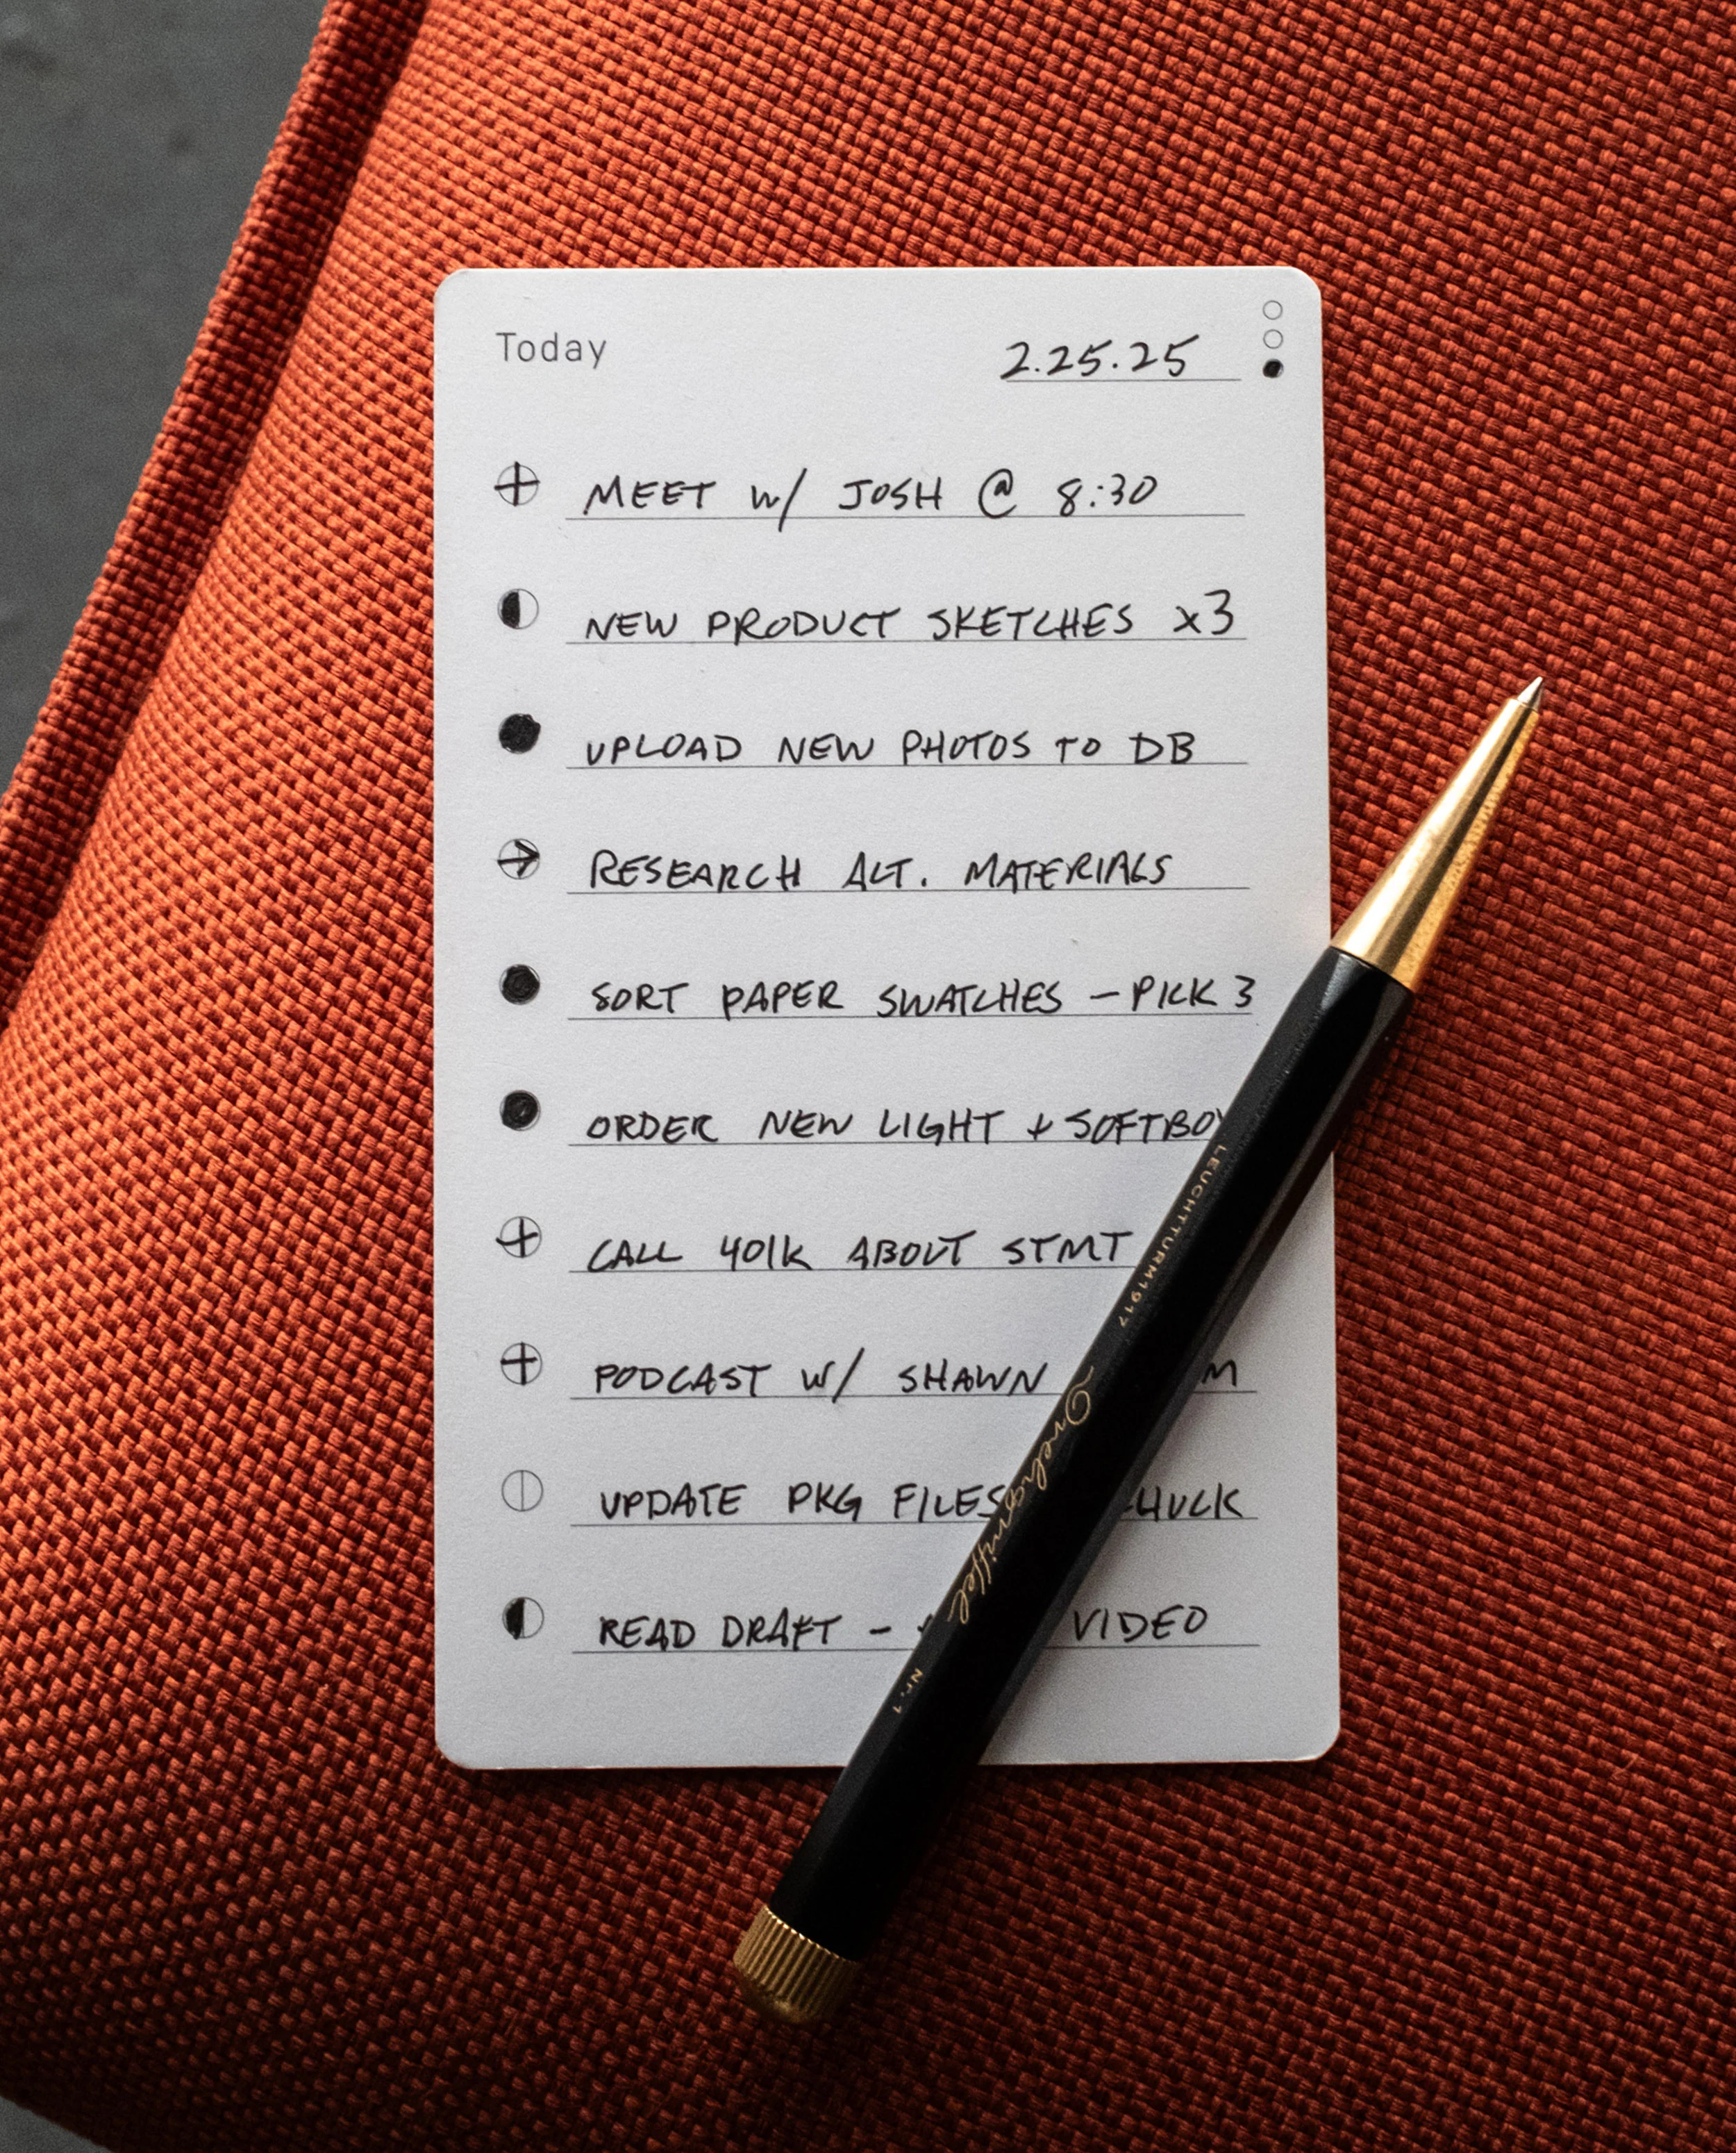 Today 2.25.25
MEET w/ JOSH @ 8:30
NEW PRODUCT SKETCHES x3
UPLOAD NEW PHOTOS TO DB
RESEARCH ALT. MATERIALS
SORT PAPER SWATCHES - PICK 3
ORDER NEW LIGHT +
CALL 401K ABOUT STMT
PODCAST W/ SHAWN
UPDATE PKG FILES
READ DRAFT - VIDEO
LEUCHTTURM1917
Drehgriffel
Nr. 1